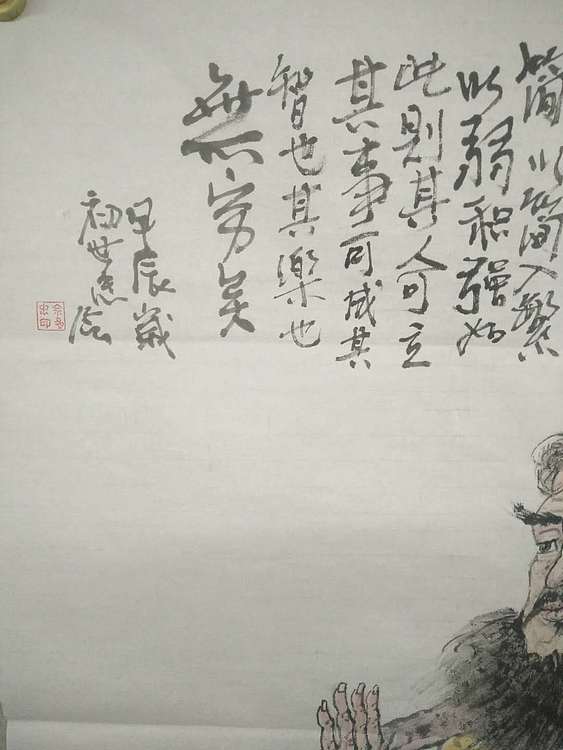 簡以簡入繁
以弱积强如
此則其人可立
其事可成其
智也其樂也
無穷矣
甲辰歲
初世